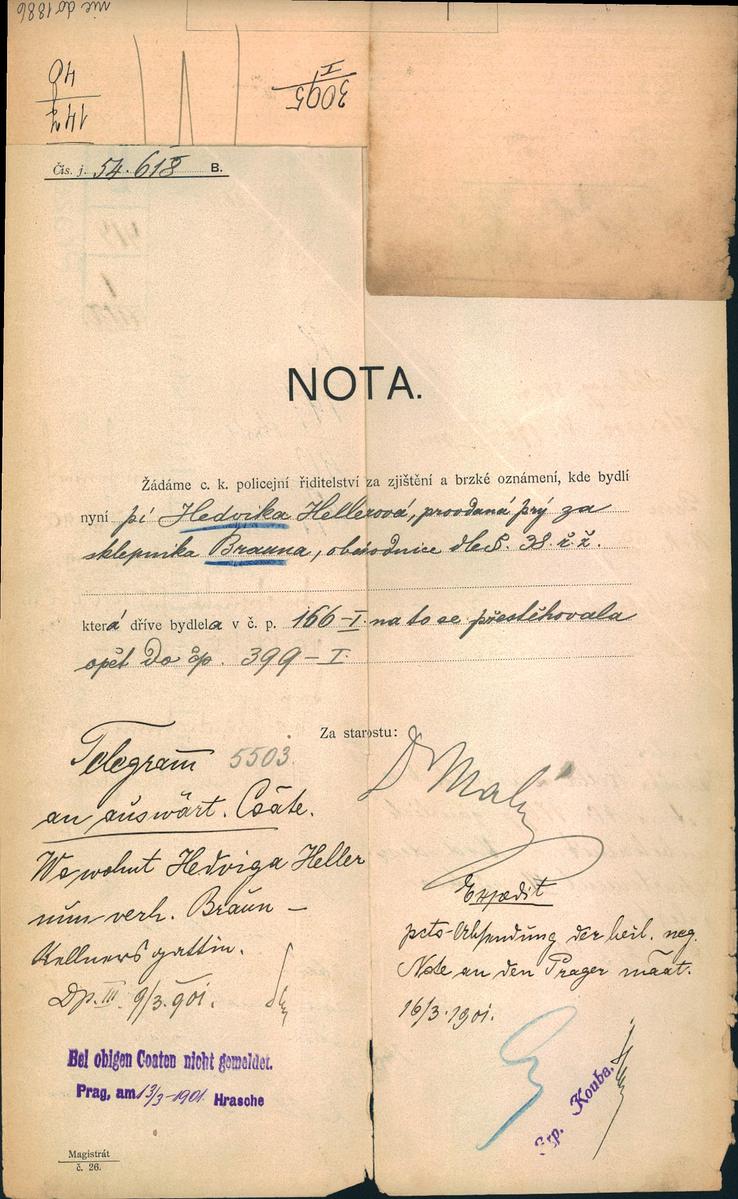 nic do 1886
40
147
3095
I
Čís. j. 54.618 B.
NOTA.
Žádáme c. k. policejní řiditelství za zjištění a brzké oznámení, kde bydlí
nyní pí Hedvika Hellerová, provdaná prý za
sklepníka Brauna, obvodnice dle §. 38. ř. ž.
která dříve bydlela v č. p. 166-I. na to se přestěhovala
opět do čp. 399-I.
Za starostu:
Dr Malý
Telegram 5503.
an auswärt. Coäte.
Wo wohnt Hedviga Heller
nun verh. Braun –
Kellnersgattin.
Dp. III. 9/3.901.
Bei obigen Coaten nicht gemeldet.
Prag, am 13/3-1901 Hrasche
Expedit
pcto Absendung der beil. neg.
Note an den Prager
16/3.1901.
Exp. Kouba.
Magistrát
č. 26.